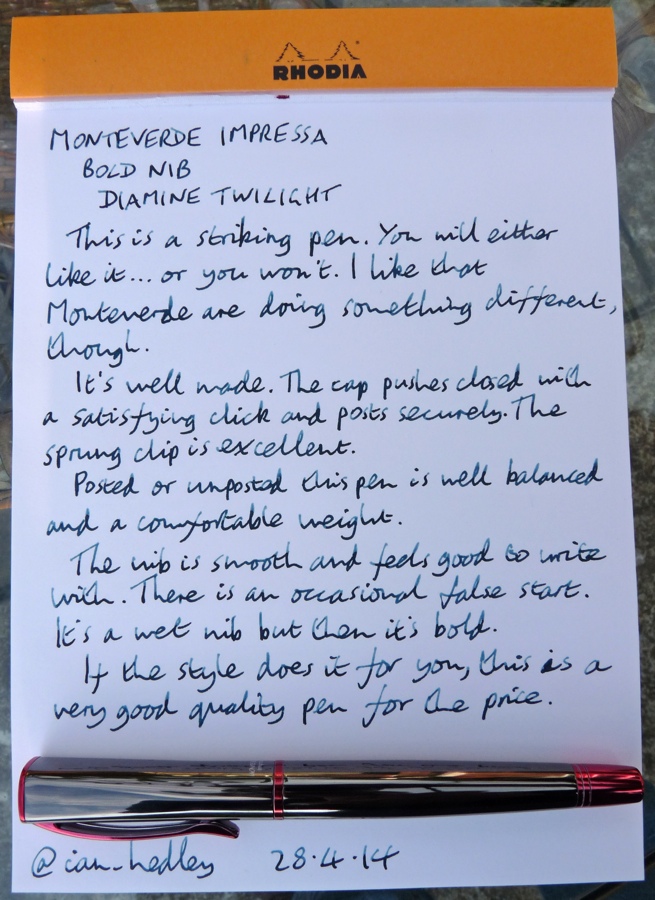 RHODIA
MONTEVERDE IMPRESSA
BOLD NIB
DIAMINE TWILIGHT
This is a striking pen. You will either
like it... or you won't. I like that
Monteverde are doing something different,
though.
It's well made. The cap pushes closed with
a satisfying click and posts securely. The
sprung clip is excellent.
Posted or unposted this pen is well balanced
and a comfortable weight.
The nib is smooth and feels good to write
with. There is an occasional false start.
It's a wet nib but then it's bold.
If the style does it for you, this is a
very good quality pen for the price.
@ian_hedley 28.4.14